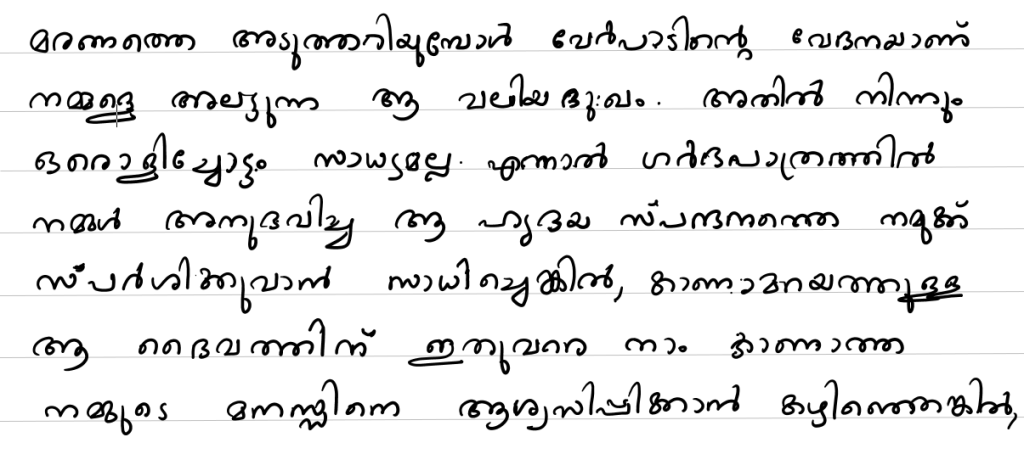 മരണത്തെ അടുത്തറിയുമ്പോൾ വേർപാടിന്റെ വേദനയാണ്
നമ്മളെ അലട്ടുന്ന ആ വലിയ ദുഃഖം. അതിൽ നിന്നും
ഒരൊളിച്ചോട്ടം സാധ്യമല്ല. എന്നാൽ ഗർഭപാത്രത്തിൽ
നമ്മൾ അനുഭവിച്ച ആ ഹൃദയ സ്പന്ദനത്തെ നമുക്ക്
സ്പർശിക്കുവാൻ സാധിച്ചെങ്കിൽ, കാണാമറയത്തുള്ള
ആ ദൈവത്തിന് ഇതുവരെ നാം കാണാത്ത
നമ്മുടെ മനസ്സിനെ ആശ്വസിപ്പിക്കാൻ കഴിഞ്ഞെങ്കിൽ,